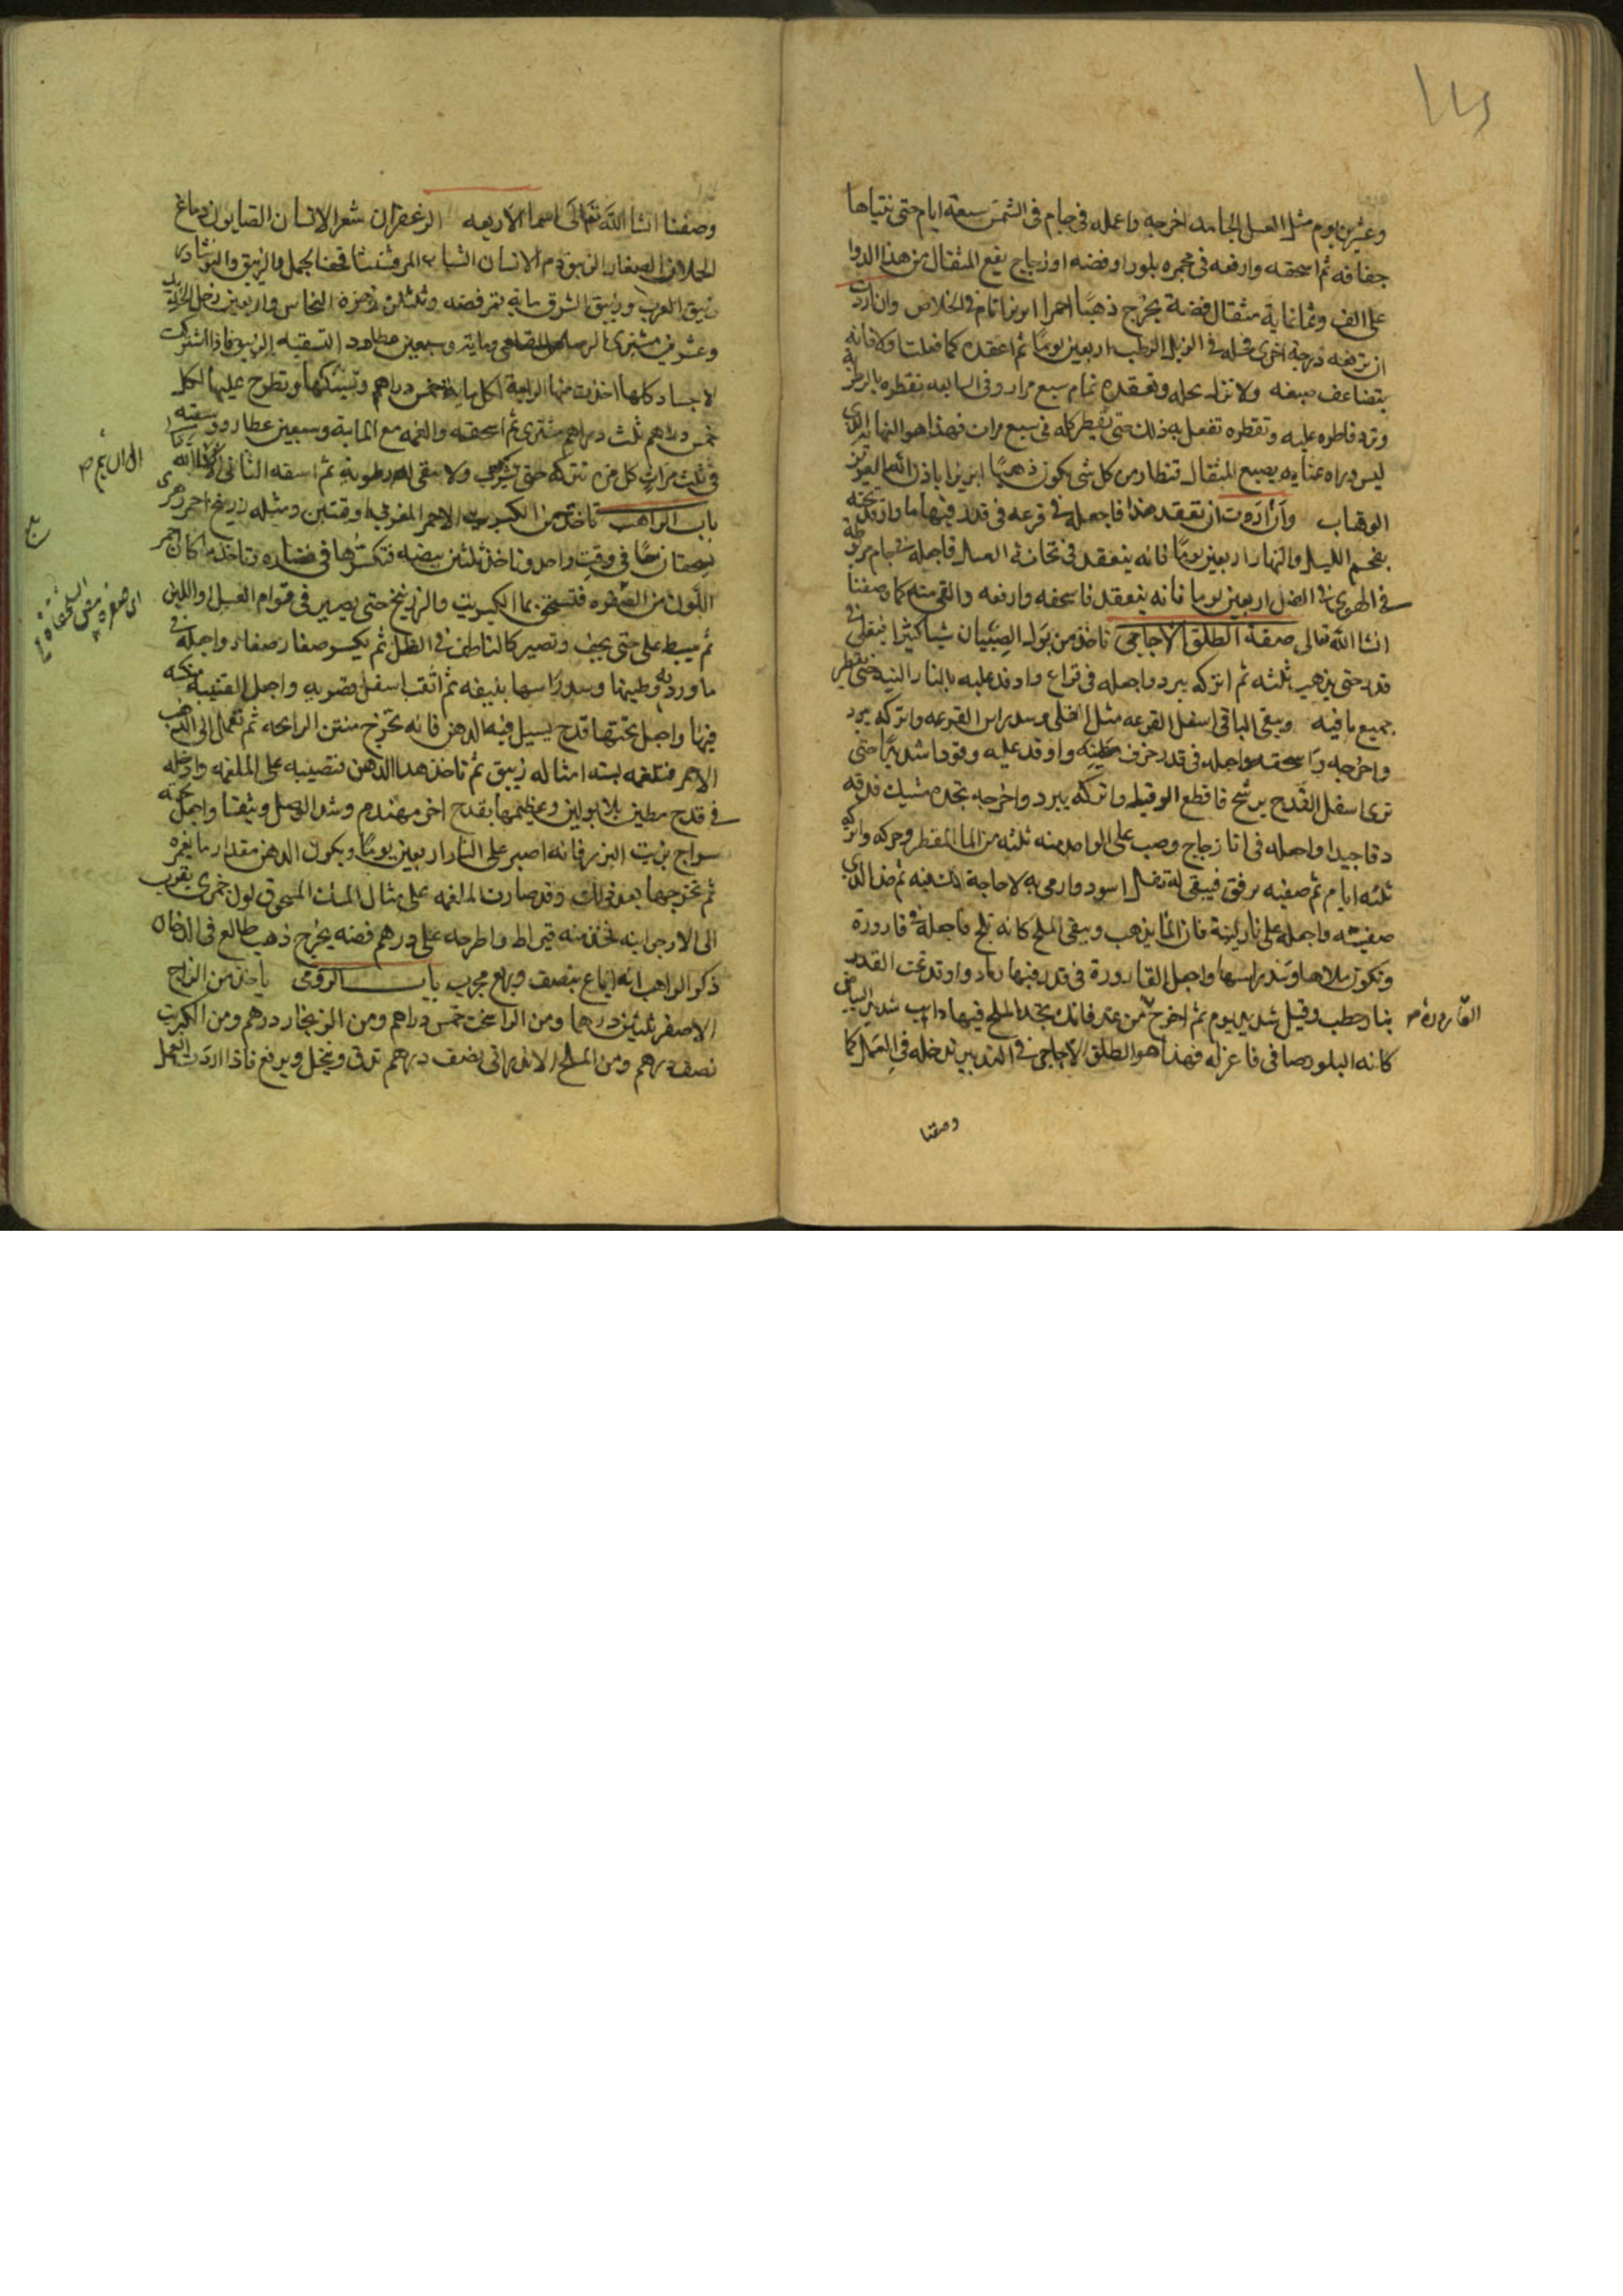 وعشرين يوم مثل العسل الجامد اخرجه واعمله فى جام فى الشمس سبعة ايام حتى يتناها
جفافه ثم اسحقه وارفعه فى محبره بلور او فضه او زجاج يقع المثقال من هذا الدوا
على الف وثمانماية مثقال فضة يخرج ذهبًا احمرا ابريزا تام فى الخلاص وان اردت
ان ترفعه درجة اخرى فحله فى الزبل الرطب اربعين يومًا ثم اعقده كما فعلت اولا فانه
يتضاعف صبغه ولا تزل تحله وتعقده تمام سبع مرار وفى السابعه تقطره بالرطوبة
وترد قاطره عليه وتقطره تفعل به ذلك حتى يقطر كله فى سبع مرات فهذا هو النهاية الذى
ليس وراه غايه يصبغ المثقال قنطار من كل شى يكون ذهبًا ابريزا باذن الله العزيز
الوهاب وان اردت ان تعقد هذا فاجعله فى قرعه فى قدر فيها ما واوقد تحته
بفحم الليل والنهار اربعين يومًا فانه ينعقد فى ثخانة العسل فاجعله فى جام مربوطة
فى الهوى فى الظل اربعين يوما فانه ينعقد فاسحقه وارفعه والقى منه كما وصفنا
انشا الله تعالى صفة الطلق الاجاجى تاخذ من بول الصبيان شيا كثيرا فيغلى فى
قدر حتى يذهب ثلثه ثم اتركه يبرد واجعله فى قراع واوقد عليه بالنار اللينه حتى يقطر
جميع ما فيه ويبقى الباقى اسفل القرعه مثل القلى وسد راس القرعه واتركه يبرد
واخرجه واسحقه واجعله فى قدر خزف مطينه واوقد عليه وقودا شديدًا حتى
ترى اسفل القدح يرشح فاقطع الوقيد واتركه يبرد واخرجه تجده مشبك فدقه
دقا جيدا واجعله فى انا زجاج وصب على الواحد منه ثلثه من الما المقطر وحركه واتركه
ثلثه ايام ثم صفيه برفق فيبقى له ثفل اسود فارمى به لا حاجة لك فيه ثم خذ الذى
صفيته واجعله على نار لينة فان الما يذهب ويبقى الملح كانه ثلج فاجعله فى قارورة
وتكون ملاها وسد راسها واجعل القارورة فى قدر فيها رماد واوقد تحت القدر
بنار حطب وقيل شديد يوم ثم اخرج من غد فانك تجد الملح فيها ذايب شديد البياض
القارورة صح
كانه البلور صافى فاعزله فهذا هو الطلق الاجاجى فى التدبير تدخله فى العمل كما
وصفنا
وصفنا انشا الله تعالى اسما الاربعه الزعفران شعر الانسان الصابون دماغ
الحملان الصغار الزيبق دم الانسان الشاب المرقشيثا قحف الجمل والزيبق والنوشادر
زيبق الغرب وزيبق الشرق ماية قمر فضه وثلثين زهرة النحاس واربعين زحل
وعشرين مشترى الرصاص القلعى وماية وسبعين عطارد التسقيه الزيبق فاذا اشتركت
الاجساد كلها اخذت منها الرابعة لكل ماية خمس دراهم وتسبكها وتطرح عليها لكل
خمس دراهم ثلث دراهم مشترى ثم اسحقه والغمه مع الماية وسبعين عطارد وسقيه
فى ثلث مرات كل مره تتركه حتى يشرب ولا يبقى له رطوبة ثم اسقه الثانى
باب الراهب تاخذ من الكبريت الاحمر المغربى اوقتين ومثله زرنيخ احمر
يسحقان معًا فى وقت واحد وتاخذ ثلثين بيضه فتكسرها فى غضاره وتاخذ ما كان احمر
اللون من الصفره فتسحق بها الكبريت والزرنيخ حتى يصير فى قوام العسل واللين
ثم يبسط على حتى يجف وتصير كالناطف فى الظل ثم يكسر صغار صغار واجعله فى
ماوردية وطينها وسد راسها بليفه ثم اثقب اسفل مضربه واجعل القنينه منكسه
فيها واجعل تحتها قدح يسيل فيه الدهن فانه يخرج منتن الرايحه ثم تعمل الى الذهب
الاحمر فتلغمه بستة امثاله زيبق ثم تاخذ هذا الدهن فتصيبه على الملغمه وادخله
فى قدح مطين وغطيها بقدح اخر مهندم وشد الوصل وثيقا واجعل تحته
سراج بزيت البزر فانه اصبر على النار اربعين يومًا ويكون الدهن مقدار ما يغمره
ثم تخرجها بعد ذلك وقد صارت الملغمه على مثال المسك المسحوق لون خمرى يقرب
الى الارجوانيه تخذ منه قيراط واطرحه على درهم فضه يخرج ذهب طالع فى الدخان
ذكر الراهب انه اباع بنصف وربع مجرب باب الرومى ياخذ من الزاج
الاصفر ثلثين درهما ومن الراسخت خمس دراهم ومن الزنجار درهم ومن الكبريت
نصف درهم ومن الملح الاندرانى نصف درهم تدق وينخل ويرفع فاذا اردت العمل